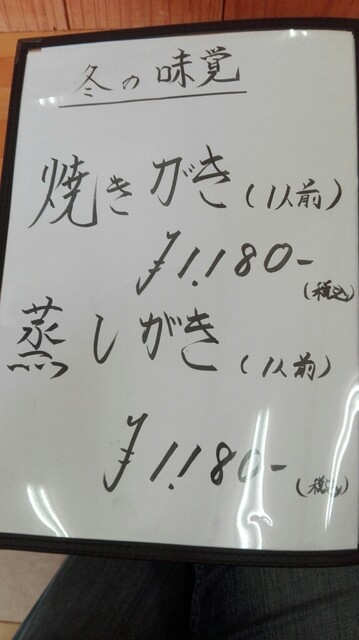 冬の味覚
焼きがき(1人前)
¥1.180-
(税込)
蒸しがき(1人前)
¥1.180-
(税込)